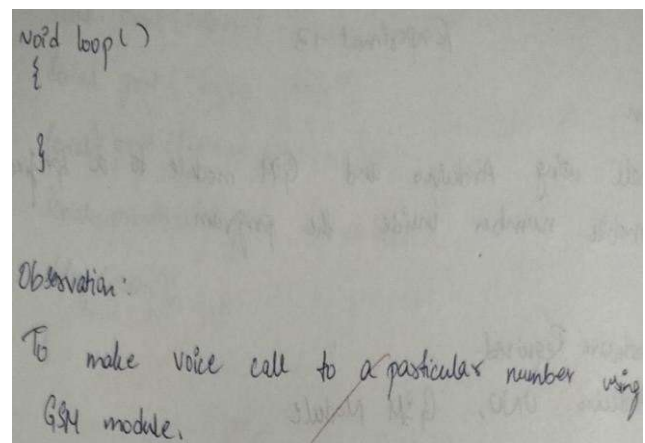 void loop()
{
}
Observation:
To make voice call to a particular number using
GSM module.